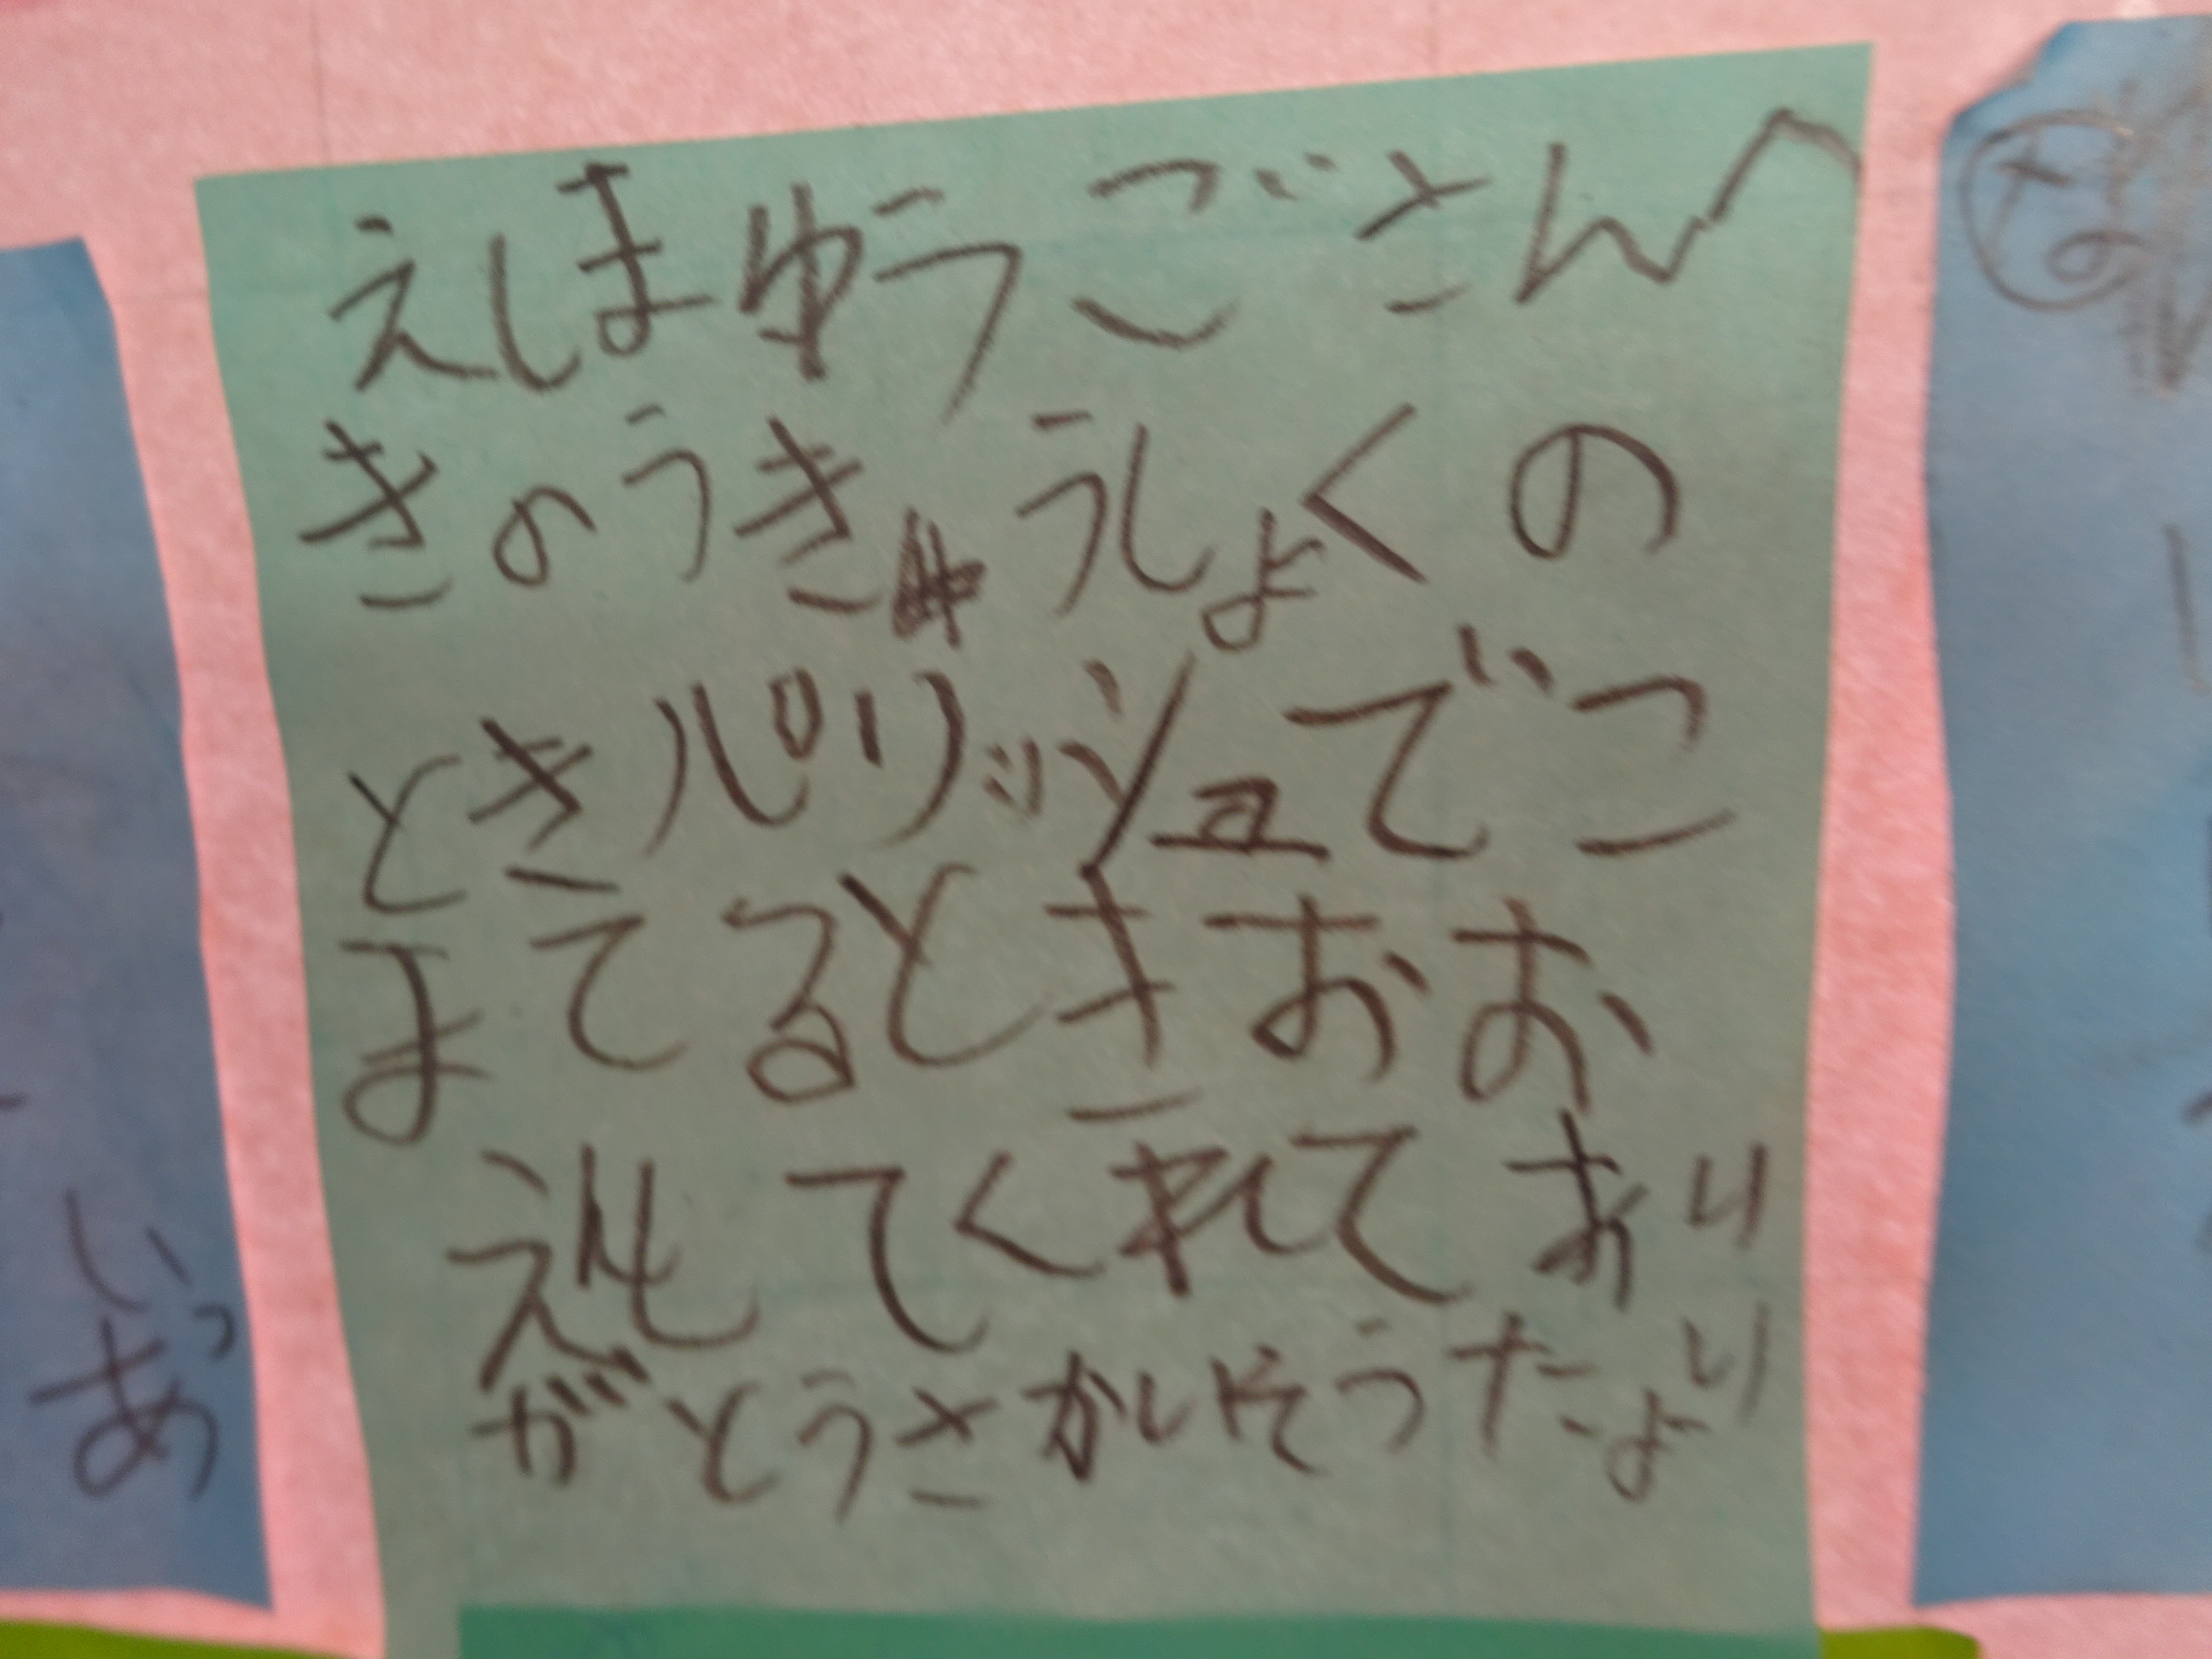 えしまゆうごさんへ
きのうきゅうしょくの
ときパリッシュでこ
まてるときおお
えしてくれてあり
がとうさかいそうたより